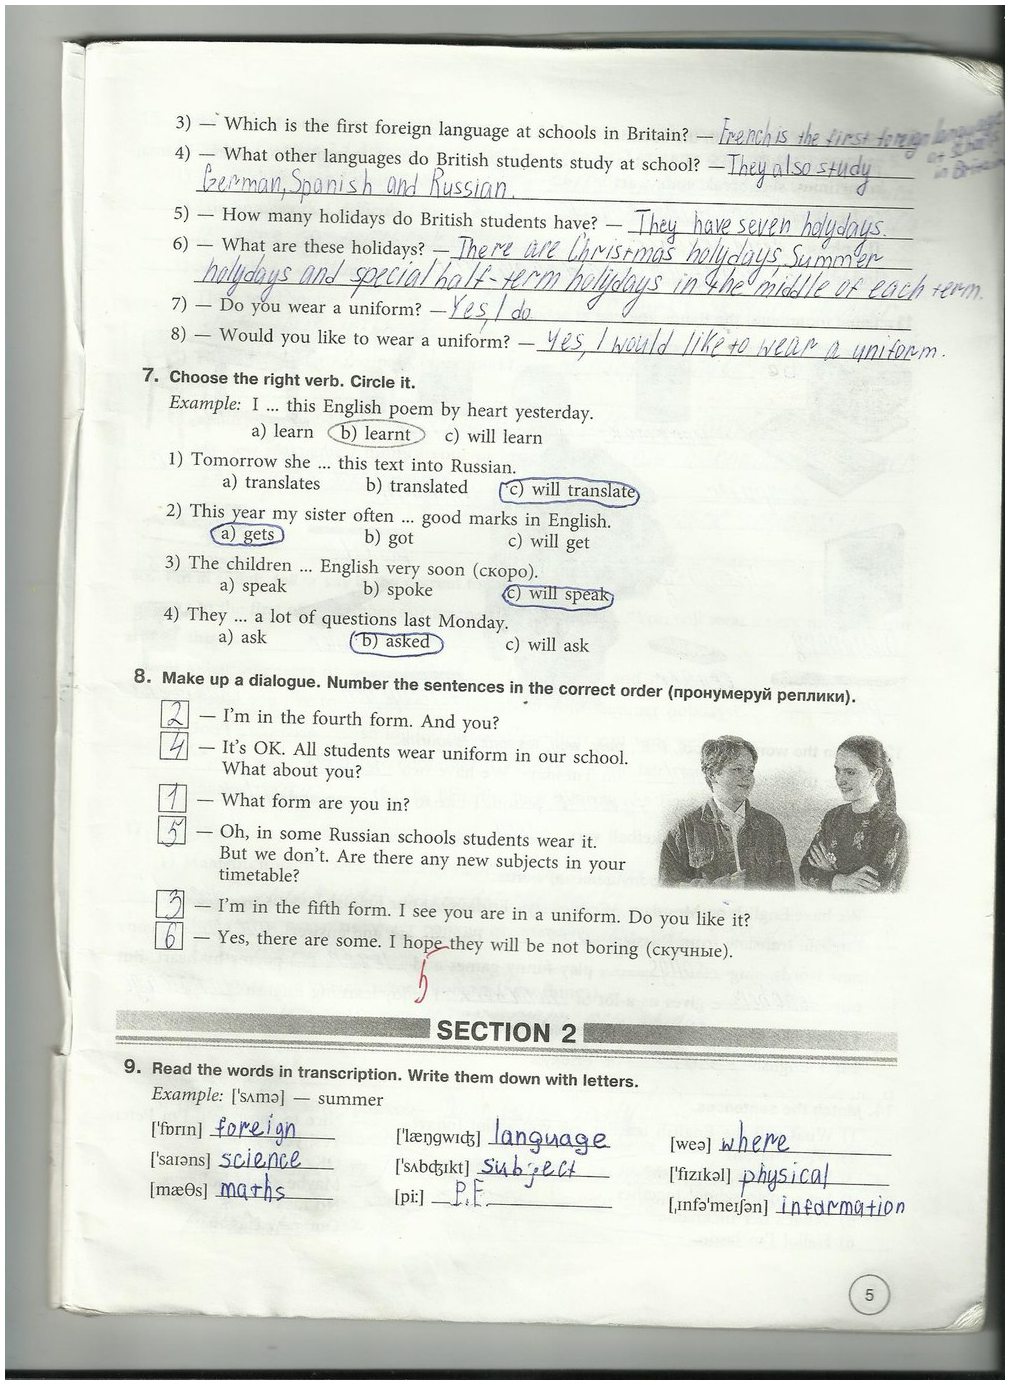 3) — Which is the first foreign language at schools in Britain? — French is the first foreign language
at schools
in Britain
4) — What other languages do British students study at school? — They also study
German, Spanish and Russian.
5) — How many holidays do British students have? — They have seven holydays.
6) — What are these holidays? — There are Christmas holydays, Summer
holydays and special half-term holydays in the middle of each term.
7) — Do you wear a uniform? — Yes, I do
8) — Would you like to wear a uniform? — Yes, I would like to wear a uniform.
7. Choose the right verb. Circle it.
Example: I ... this English poem by heart yesterday.
a) learn b) learnt c) will learn
1) Tomorrow she ... this text into Russian.
a) translates b) translated c) will translate
2) This year my sister often ... good marks in English.
a) gets b) got c) will get
3) The children ... English very soon (скоро).
a) speak b) spoke c) will speak
4) They ... a lot of questions last Monday.
a) ask b) asked c) will ask
8. Make up a dialogue. Number the sentences in the correct order (пронумеруй реплики).
2 — I'm in the fourth form. And you?
4 — It's OK. All students wear uniform in our school.
What about you?
1 — What form are you in?
5 — Oh, in some Russian schools students wear it.
But we don't. Are there any new subjects in your
timetable?
3 — I'm in the fifth form. I see you are in a uniform. Do you like it?
6 — Yes, there are some. I hope they will be not boring (скучные).
5
SECTION 2
9. Read the words in transcription. Write them down with letters.
Example: [ˈsʌmə] — summer
[ˈfɒrɪn] foreign [ˈlæŋgwɪʤ] language [weə] where
[ˈsaɪəns] science [ˈsʌbʤɪkt] subject [ˈfɪzɪkəl] physical
[mæθs] maths [pi:] P.E. [ˌɪnfəˈmeɪʃən] information
5